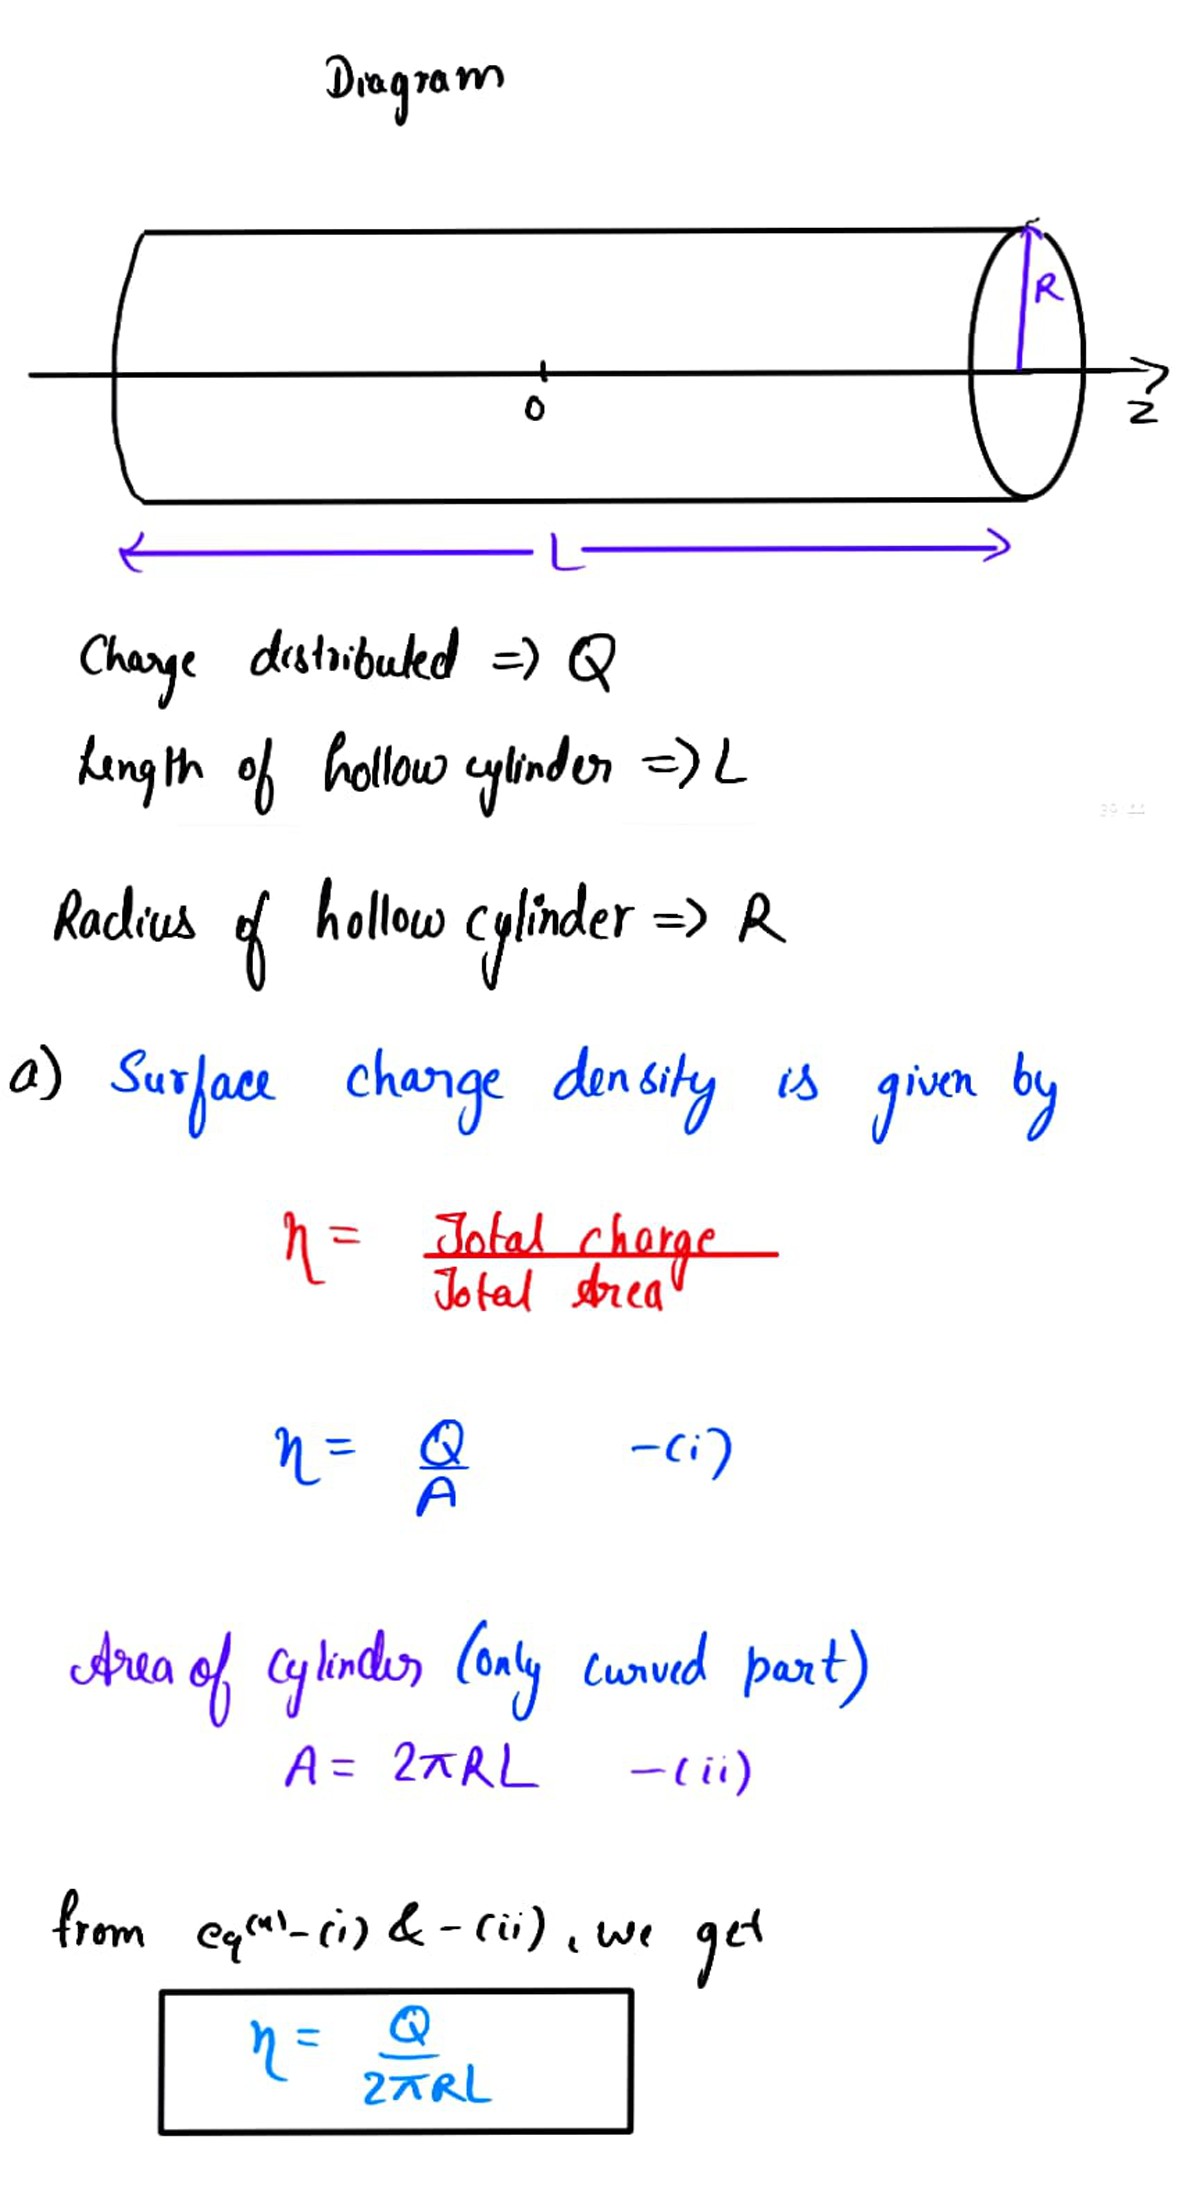 Diagram
R
0
Z
L
Charge distributed => Q
Length of hollow cylinder => L
Radius of hollow cylinder => R
a) Surface charge density is given by
η = Total charge / Total Area
η = Q / A -(i)
Area of cylinder (only curved part)
A = 2πRL -(ii)
from eq⁽ⁿ⁾-(i) & -(ii), we get
η = Q / 2πRL